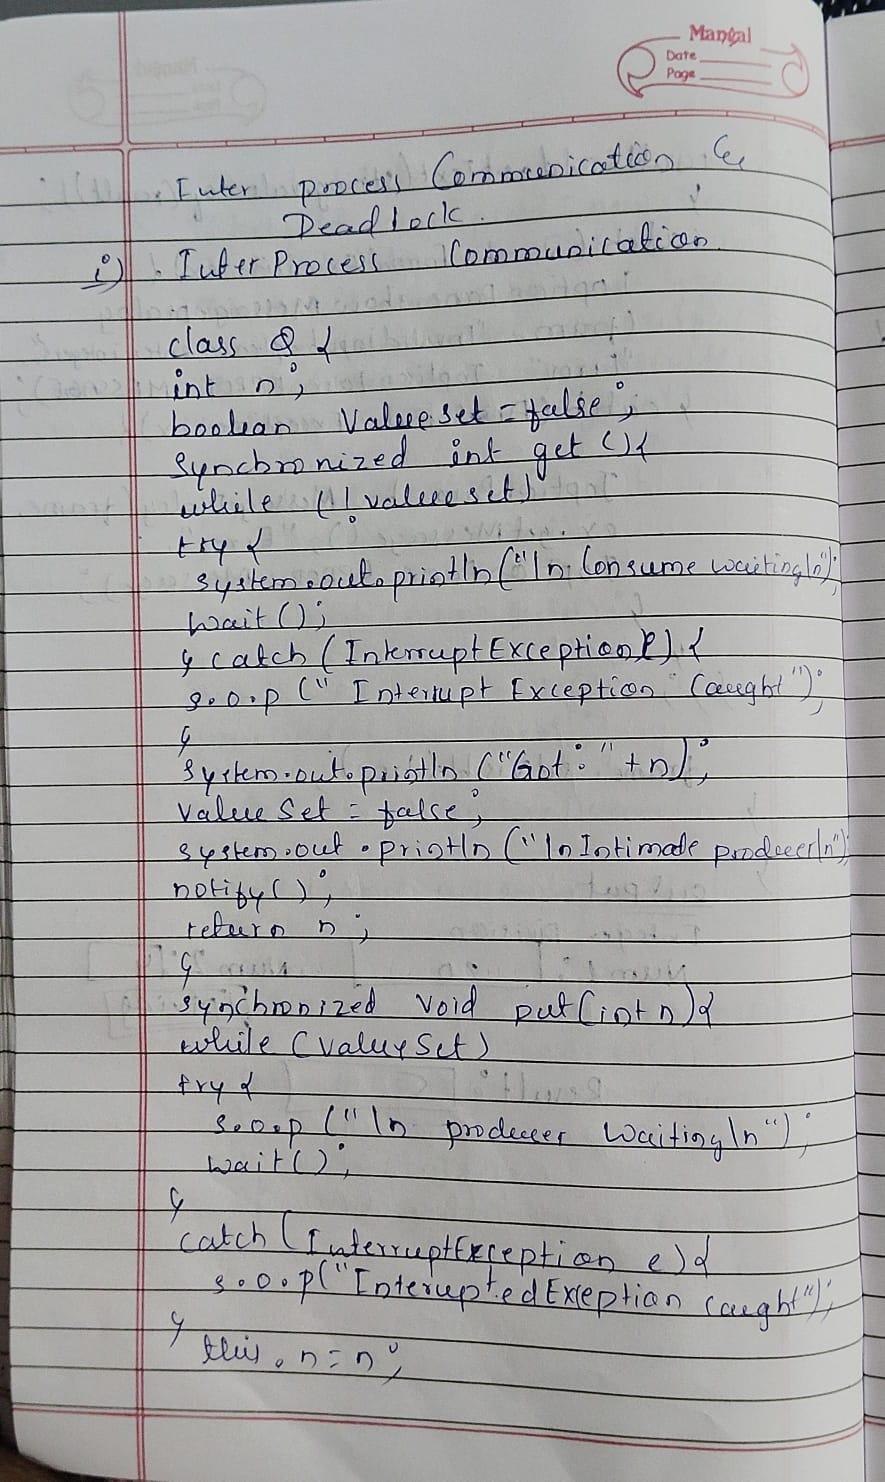 Mangal
Date
Page
Inter process Communication &
Deadlock.
i) Inter Process Communication
class Q {
int n;
boolean Valueset = false;
synchronized int get () {
while (! valueset)
try {
system.out.println("\n Consume waiting\n");
wait();
} catch (InterruptException e) {
s.o.p (" Interrupt Exception Caught");
}
system.out.println ("Got : " + n);
value Set = false;
system.out.println ("\n Intimate producer\n")
notify();
return n;
}
synchronized void put (int n) {
while (value Set)
try {
s.o.p ("\n producer waiting\n");
wait();
}
catch (InterruptException e) {
s.o.p("Interupted Exception Caught");
}
this.n = n;